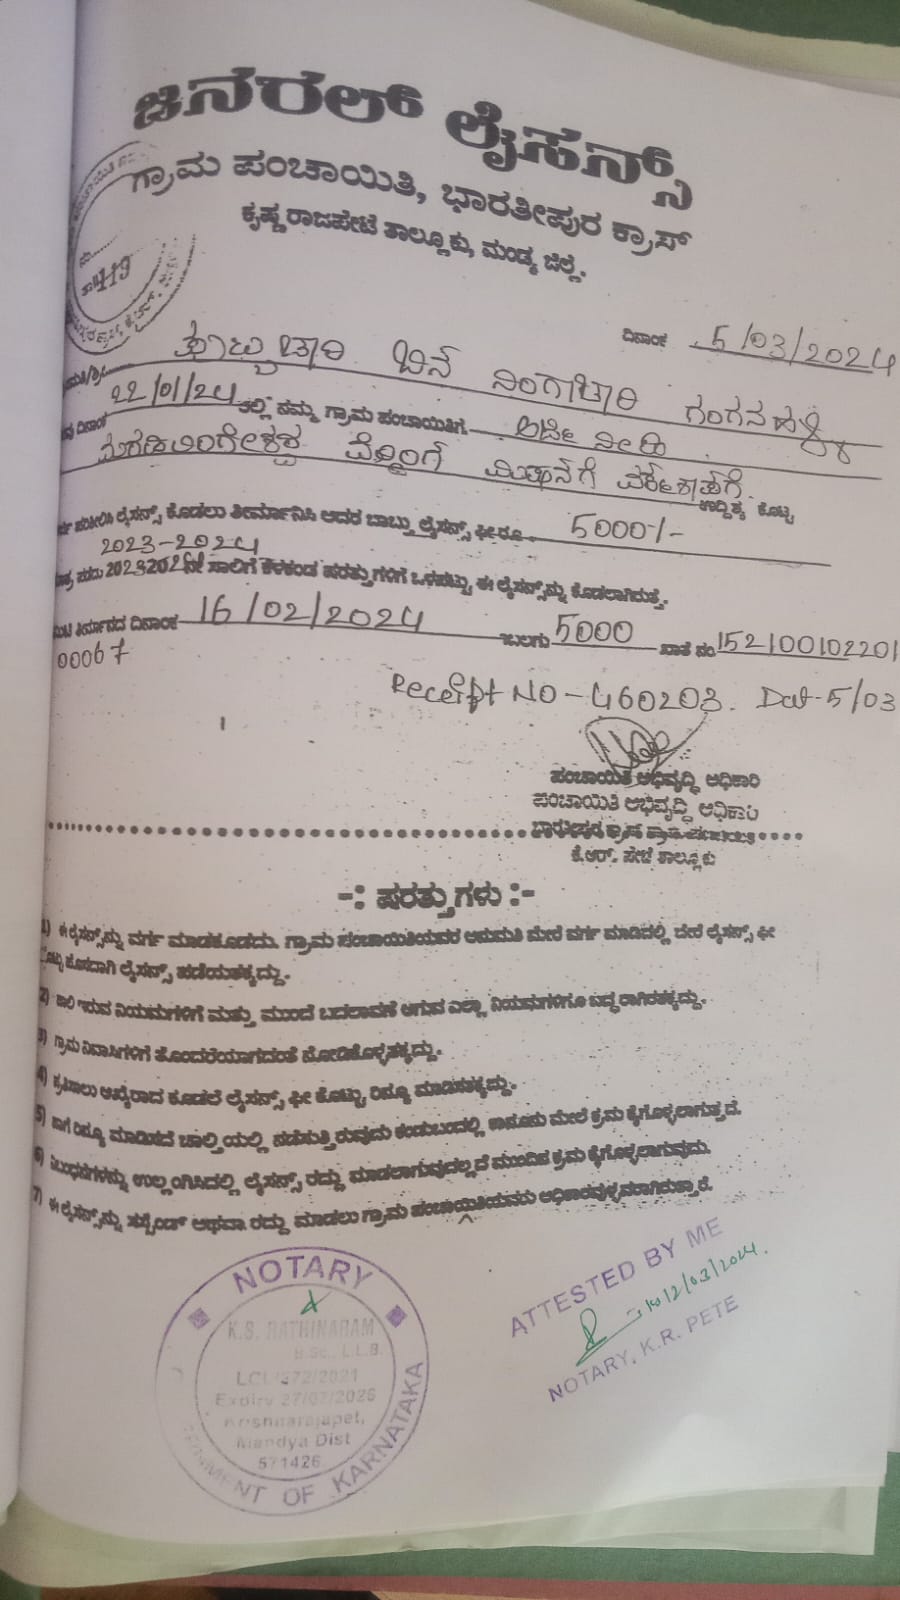 ಜನರಲ್ ಲೈಸನ್ಸ್
ಗ್ರಾಮ ಪಂಚಾಯಿತಿ, ಭಾರತೀಪುರ ಕ್ರಾಸ್
ಕೃಷ್ಣರಾಜಪೇಟೆ ತಾಲ್ಲೂಕು, ಮಂಡ್ಯ ಜಿಲ್ಲೆ.
119
ದಿನಾಂಕ 5/03/2024
ಬಿನ್ ನಿಂಗಾಚಾರಿ ಗಂಗನಹಳ್ಳಿ
ದಿನಾಂಕ 22/01/24 ರಲ್ಲಿ ನಮ್ಮ ಗ್ರಾಮ ಪಂಚಾಯಿತಿಗೆ ಅರ್ಜಿ ನೀಡಿ
ವೆಲ್ಡಿಂಗ್ ಉದ್ದಿಶ್ಯ ಕೊಟ್ಟ
ಲೈಸನ್ಸ್ ಕೊಡಲು ತೀರ್ಮಾನಿಸಿ ಅದರ ಬಾಬ್ತು ಲೈಸನ್ಸ್ ಫೀ ರೂ. 5000/-
2023-2024
ಸಾಲಿಗೆ ಕೆಳಕಂಡ ಷರತ್ತುಗಳಿಗೆ ಒಳಪಟ್ಟು ಈ ಲೈಸನ್ಸ್‌ನ್ನು ಕೊಡಲಾಗಿರುತ್ತೆ.
ತೀರ್ಮಾನದ ದಿನಾಂಕ 16/02/2024 5000 ಖಾತೆ ನಂ 152100102201
00067
Receipt NO - 460203. Dat-5/03
ಪಂಚಾಯಿತಿ ಅಭಿವೃದ್ಧಿ ಅಧಿಕಾರಿ
ಪಂಚಾಯಿತಿ ಅಭಿವೃದ್ಧಿ ಅಧಿಕಾರಿ
ಭಾರತೀಪುರ ಕ್ರಾಸ್ ಗ್ರಾಮ ಪಂಚಾಯಿತಿ
ಕೆ.ಆರ್. ಪೇಟೆ ತಾಲ್ಲೂಕು
-: ಷರತ್ತುಗಳು :-
1) ಈ ಲೈಸನ್ಸ್‌ನ್ನು ವರ್ಗ ಮಾಡಕೂಡದು. ಗ್ರಾಮ ಪಂಚಾಯಿತಿಯವರ ಅನುಮತಿ ಮೇರೆ ವರ್ಗ ಮಾಡಿದಲ್ಲಿ ಬೇರೆ ಲೈಸನ್ಸ್ ಫೀ
ಕೊಟ್ಟು ಹೊಸದಾಗಿ ಲೈಸನ್ಸ್ ಪಡೆಯತಕ್ಕದ್ದು.
2) ಹಾಲಿ ಇರುವ ನಿಯಮಗಳಿಗೆ ಮತ್ತು ಮುಂದೆ ಬದಲಾವಣೆ ಆಗುವ ಎಲ್ಲಾ ನಿಯಮಗಳಿಗೂ ಬದ್ಧರಾಗಿರತಕ್ಕದ್ದು.
3) ಗ್ರಾಮ ನಿವಾಸಿಗಳಿಗೆ ತೊಂದರೆಯಾಗದಂತೆ ನೋಡಿಕೊಳ್ಳತಕ್ಕದ್ದು.
4) ಕೂಡಲೆ ಲೈಸನ್ಸ್ ಫೀ ಕೊಟ್ಟು ರಿನ್ಯೂ ಮಾಡಿಸತಕ್ಕದ್ದು.
5) ಹಾಗೆ ರಿನ್ಯೂ ಮಾಡಿಸದೆ ಚಾಲ್ತಿಯಲ್ಲಿ ನಡೆಸುತ್ತಿರುವುದು ಕಂಡುಬಂದಲ್ಲಿ ಕಾನೂನು ಮೇಲೆ ಕ್ರಮ ಕೈಗೊಳ್ಳಲಾಗುತ್ತದೆ.
6) ನಿಬಂಧನೆಗಳನ್ನು ಉಲ್ಲಂಗಿಸಿದಲ್ಲಿ ಲೈಸನ್ಸ್ ರದ್ದು ಮಾಡಲಾಗುವುದಲ್ಲದೆ ಮುಂದಿನ ಕ್ರಮ ಕೈಗೊಳ್ಳಲಾಗುವುದು.
7) ಈ ಲೈಸನ್ಸ್‌ನ್ನು ಸಸ್ಪೆಂಡ್ ಅಥವಾ ರದ್ದು ಮಾಡಲು ಗ್ರಾಮ ಪಂಚಾಯಿತಿಯವರು ಅಧಿಕಾರವುಳ್ಳವರಾಗಿರುತ್ತಾರೆ.
NOTARY
K.S. RATHINARAM
B.Sc., L.L.B.
Expiry 27/02/2026
Krishnarajapet,
Mandya Dist
571426
OF KARNATAKA
ATTESTED BY ME
12/03/2024.
NOTARY, K.R. PETE